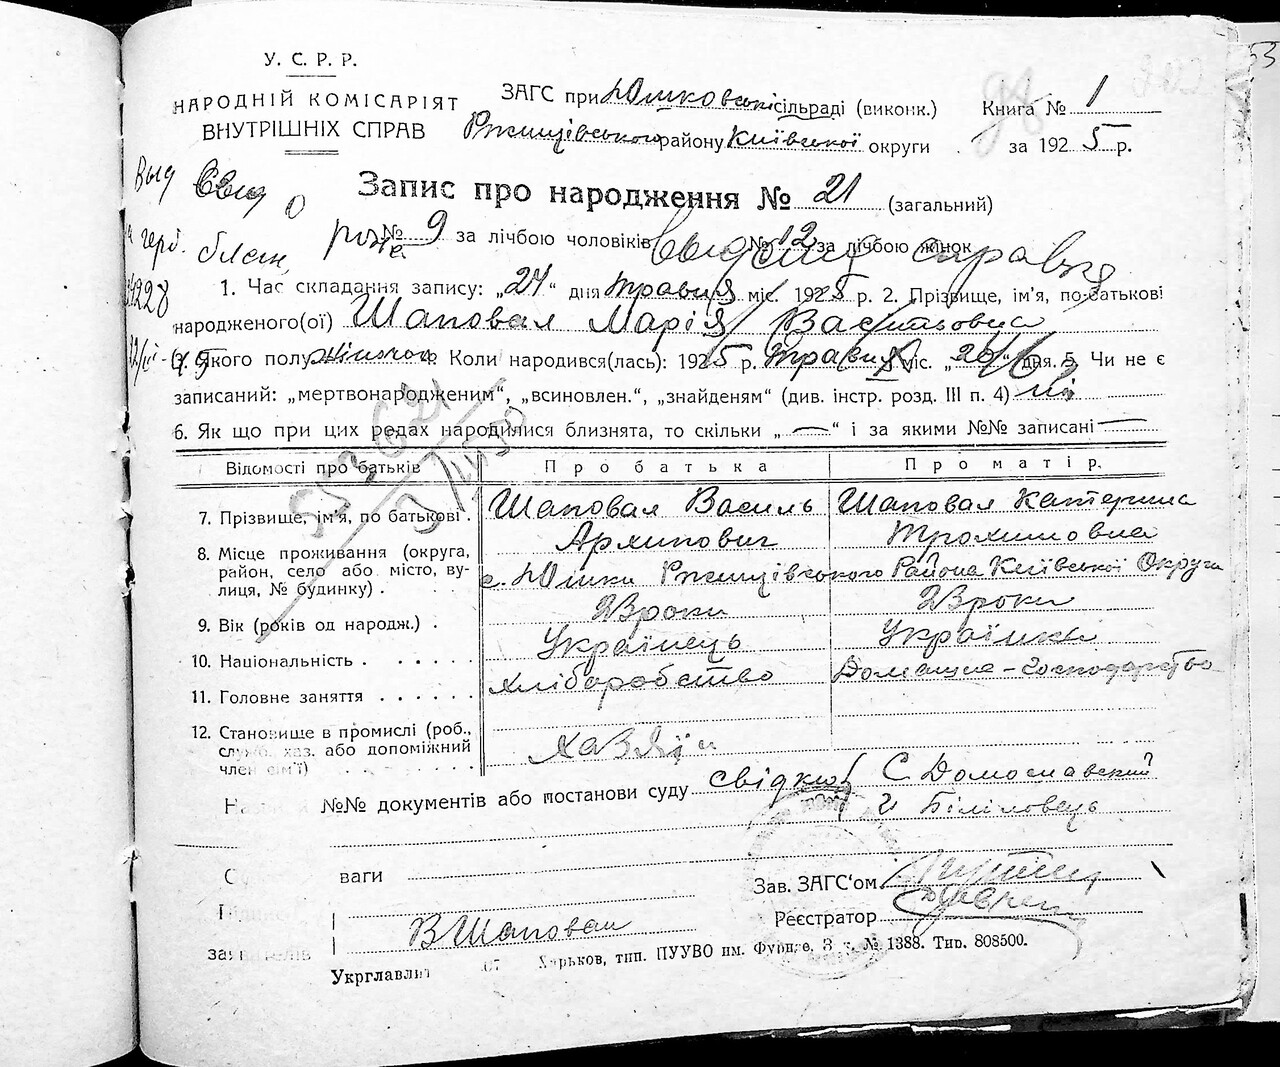 У. С. Р. Р.
НАРОДНІЙ КОМІСАРІЯТ
ВНУТРІШНІХ СПРАВ
ЗАГС при Юшковській сільраді (виконк.)
Ржищівського району Київської округи
Книга № 1
за 1925 р.
Запис про народження № 21 (загальний)
№ 9 за лічбою чоловіків № 12 за лічбою жінок
1. Час складання запису: „24“ дня травня міс. 1925 р. 2. Прізвище, ім'я, по-батькові
народженого(ої) Шаповал Марія Василівна
якого полу жіночої Коли народився(лась): 1925 р. травня міс. „20“ дня. 5. Чи не є
записаний: „мертвонародженим“, „всиновлен.“, „знайденям“ (див. інстр. розд. III п. 4) ні
6. Як що при цих родах народилися близнята, то скільки „—“ і за якими №№ записані —
Відомості про батьків Про батька Про матір.
7. Прізвище, ім'я, по батькові . Шаповал Василь Архипович Шаповал Катерина Трохимовна
8. Місце проживання (округа, район, село або місто, вулиця, № будинку) . с. Юшки Ржищівського Района Київської Округи
9. Вік (років од народж.) . 23 роки 23 роки
10. Національність . . . . . . Українець Українка
11. Головне заняття . . . . . . хліборобство Домашне-господарство
12. Становище в промислі (роб., служб. хаз. або допоміжний член сім'ї) Хазяїн
№№ документів або постанови суду свідки С. Домославский
И Біліловець
ваги
Зав. ЗАГС'ом
Реєстратор
В Шаповал
Укрглавліт Харьков, тип. ПУУВО им. Фрунзе, З к. № 1388. Тир. 808500.